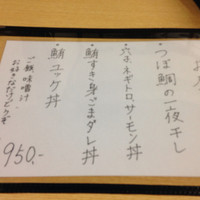 ・つぼ鯛の一夜干し
・穴子、ネギトロ、サーモン丼
・鮪すき身ごまダレ丼
・鮪ユッケ丼
ご飯 味噌汁
お好きなだけどうぞ
950.-